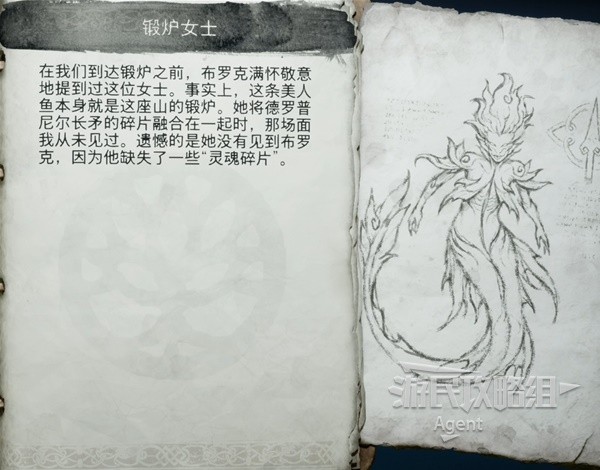 锻炉女士
在我们到达锻炉之前，布罗克满怀敬意
地提到过这位女士。事实上，这条美人
鱼本身就是这座山的锻炉。她将德罗普
尼尔长矛的碎片融合在一起时，那场面
我从未见过。遗憾的是她没有见到布罗
克，因为他缺失了一些“灵魂碎片”。
游民攻略组
Agent